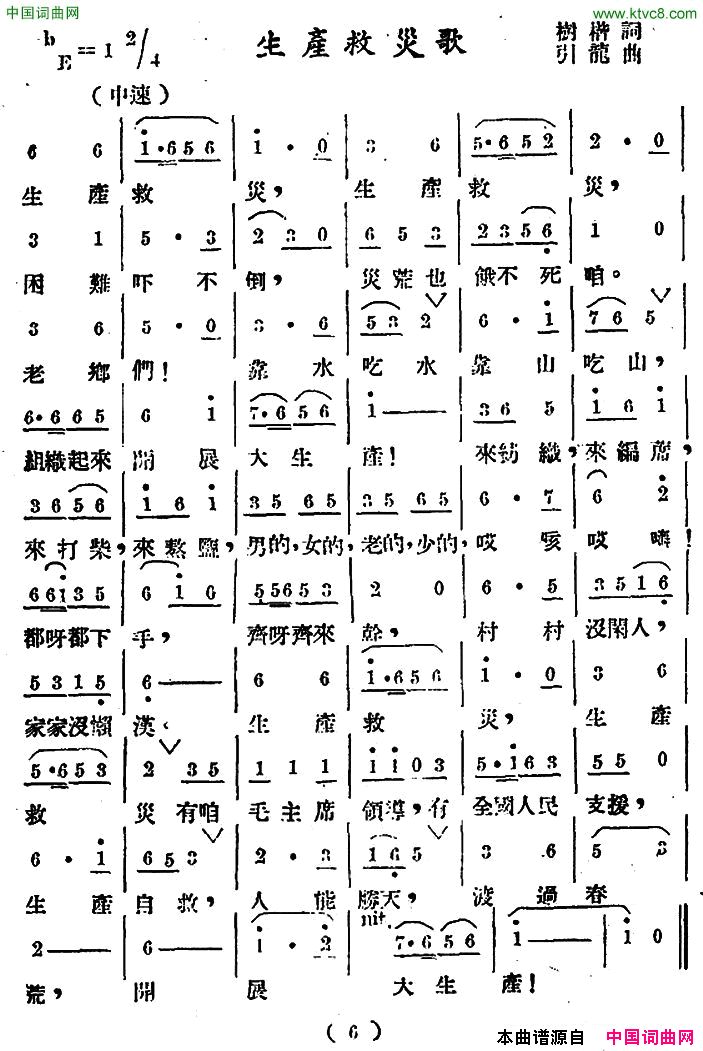 中国词曲网
www.ktvc8.com
♭E=1 2/4
生產救災歌
樹楷詞
引龍曲
（中速）
6 6 | 1·656 | 1·0 | 3 6 | 5·652 | 2·0
生產救災，生產救災，
3 1 | 5·3 | 2 3 0 | 6 5 3 | 2356 | 1 0
困難吓不倒，災荒也餓不死咱。
3 6 | 5·0 | 3·6 | 53 2 | 6·1 | 76 5
老鄉們！靠水吃水靠山吃山，
6·665 | 6 1 | 7·656 | 1— | 36 5 | 1 6 1
組織起來開展大生產！來紡織，來編蓆，
3656 | 1 6 1 | 35 65 | 35 65 | 6·7 | 6 2
來打柴，來熬鹽，男的，女的，老的，少的，哎咳哎嗬！
66135 | 6 1 6 | 55653 | 2 0 | 6·5 | 3516
都呀都下手，齊呀齊來幹，村村沒閑人，
5315 | 6— | 6 6 | 1·656 | 1·0 | 3 6
家家沒懶漢、生產救災，生產
5·653 | 2 35 | 1 1 1 | 1103 | 5·163 | 55 0
救災有咱毛主席領導，有全國人民支援，
6·1 | 653 | 2·3 | 16 5 | 3 6 | 5 3
生產自救，人能勝天，渡過春
rit.
2— | 6— | 1·2 | 7·656 | 1— | 1 0
荒，開展大生產！
（6）
本曲谱源自 中国词曲网